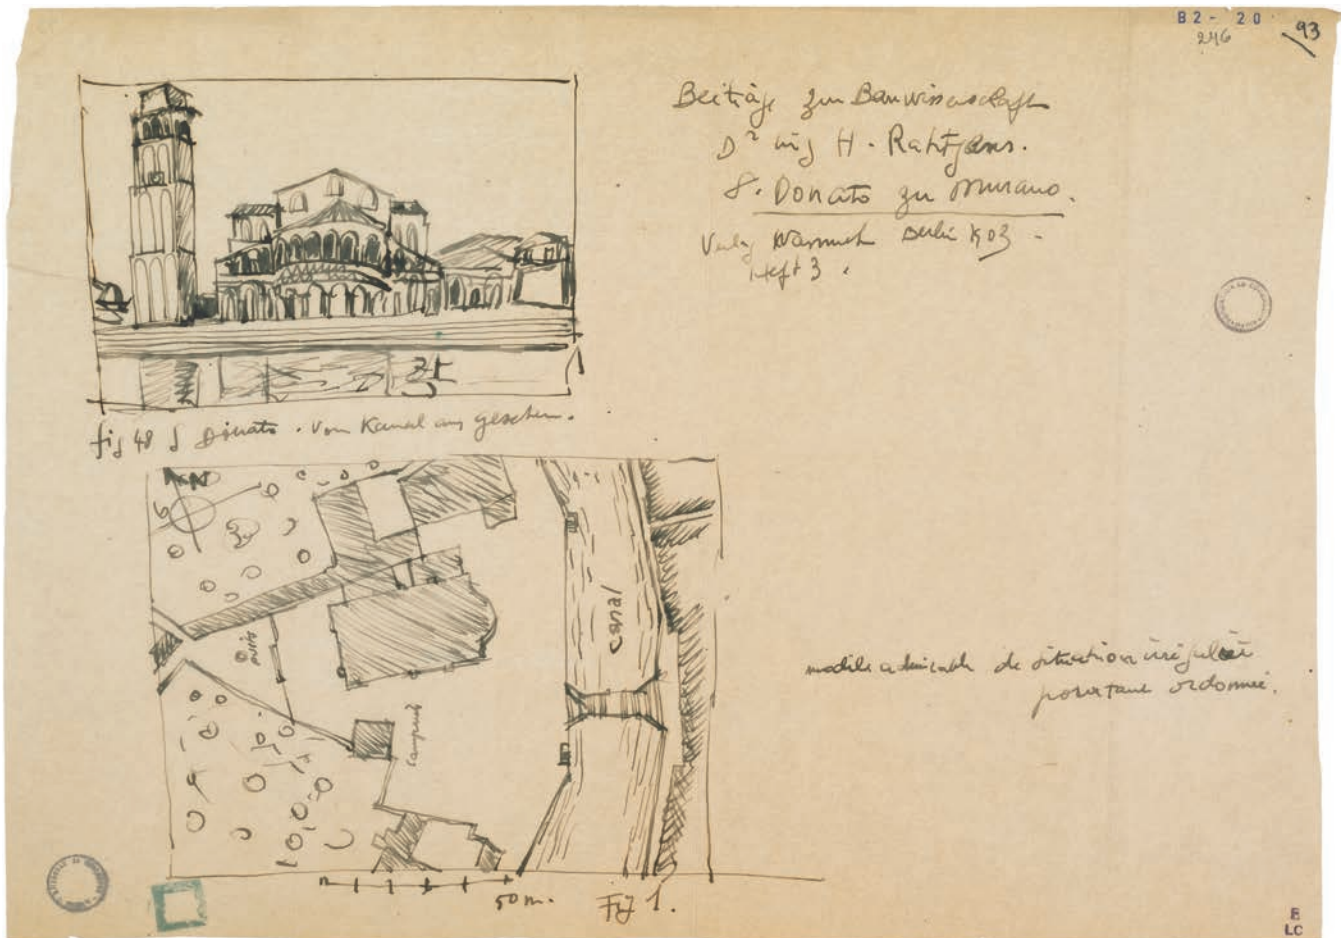 B2 - 20
246
93
Beiträge zur Bauwissenschaft
Dr ing H. Rahtgens.
S. Donato zu Murano.
Verlag Wasmuth Berlin 1903 -
Heft 3.
fig 48 S Donato . vom Kanal aus gesehen.
N
puits
canal
campanile
modèle admirable de situation irrégulière
pourtant ordonnée.
50 m.
Fig 1.
E
LC